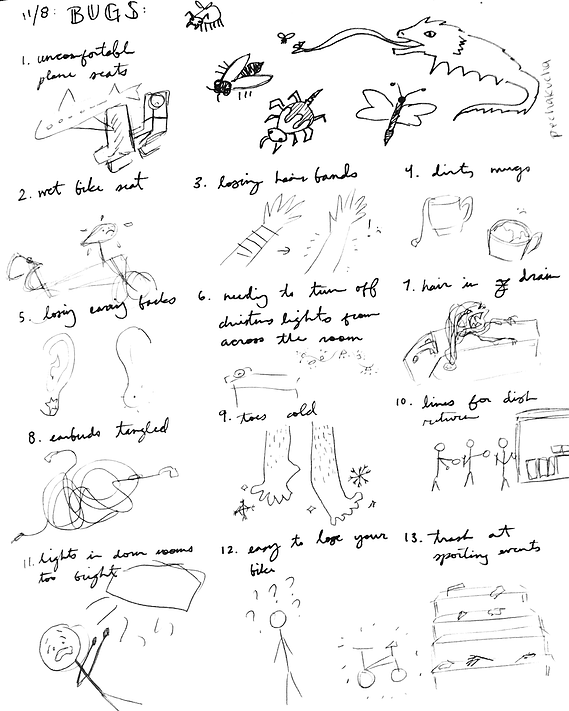 11/8: BUGS:
1. uncomfortable
plane seats
pechakucha
2. wet bike seat
3. losing hair bands
4. dirty mugs
5. losing earring backs
6. needing to turn off
christmas lights from
across the room
7. hair in drain
8. earbuds tangled
9. toes cold
10. lines for dish
return
11. lights in dorm rooms
too bright
12. easy to lose your
bike
? ? ? ?
13. trash at
sporting events